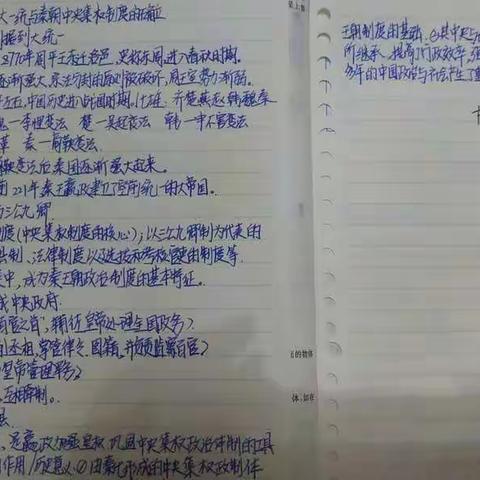 大一统与秦朝中央集权制度的确立
割据到大统一
770年周平王东迁洛邑,史称东周,进入春秋时期。
逐渐强大,宗法分封的原则被破坏,周王室势力渐弱。
中国历史进入战国时期,七雄:齐楚燕赵韩魏秦
李悝变法 楚一吴起变法 韩一申不害变法
革 秦一商鞅变法
商鞅变法后秦国逐渐强大起来。
前221年秦王嬴政建立了空前统一的大帝国。
与三公九卿
制度(中央集权制度的核心);以三公九卿制为代表的
县制、法律制度以及选拔和考核官吏的制度等
成为秦王朝政治制度的基本特征。
成中央政府
百官之首,辅佐皇帝处理全国政务)
副丞相,掌管律令、图籍,并负责监察百官)
皇帝管理军务)
互相牵制。
县
是嬴政加强皇权、巩固中央集权政治体制的工具
作用/历史意义:①由秦代形成的中央集权政制体
王朝制度的基础,
所继承,提高了行政效率,强
多年的中国政治与社会产生了重
的物体
体,如在